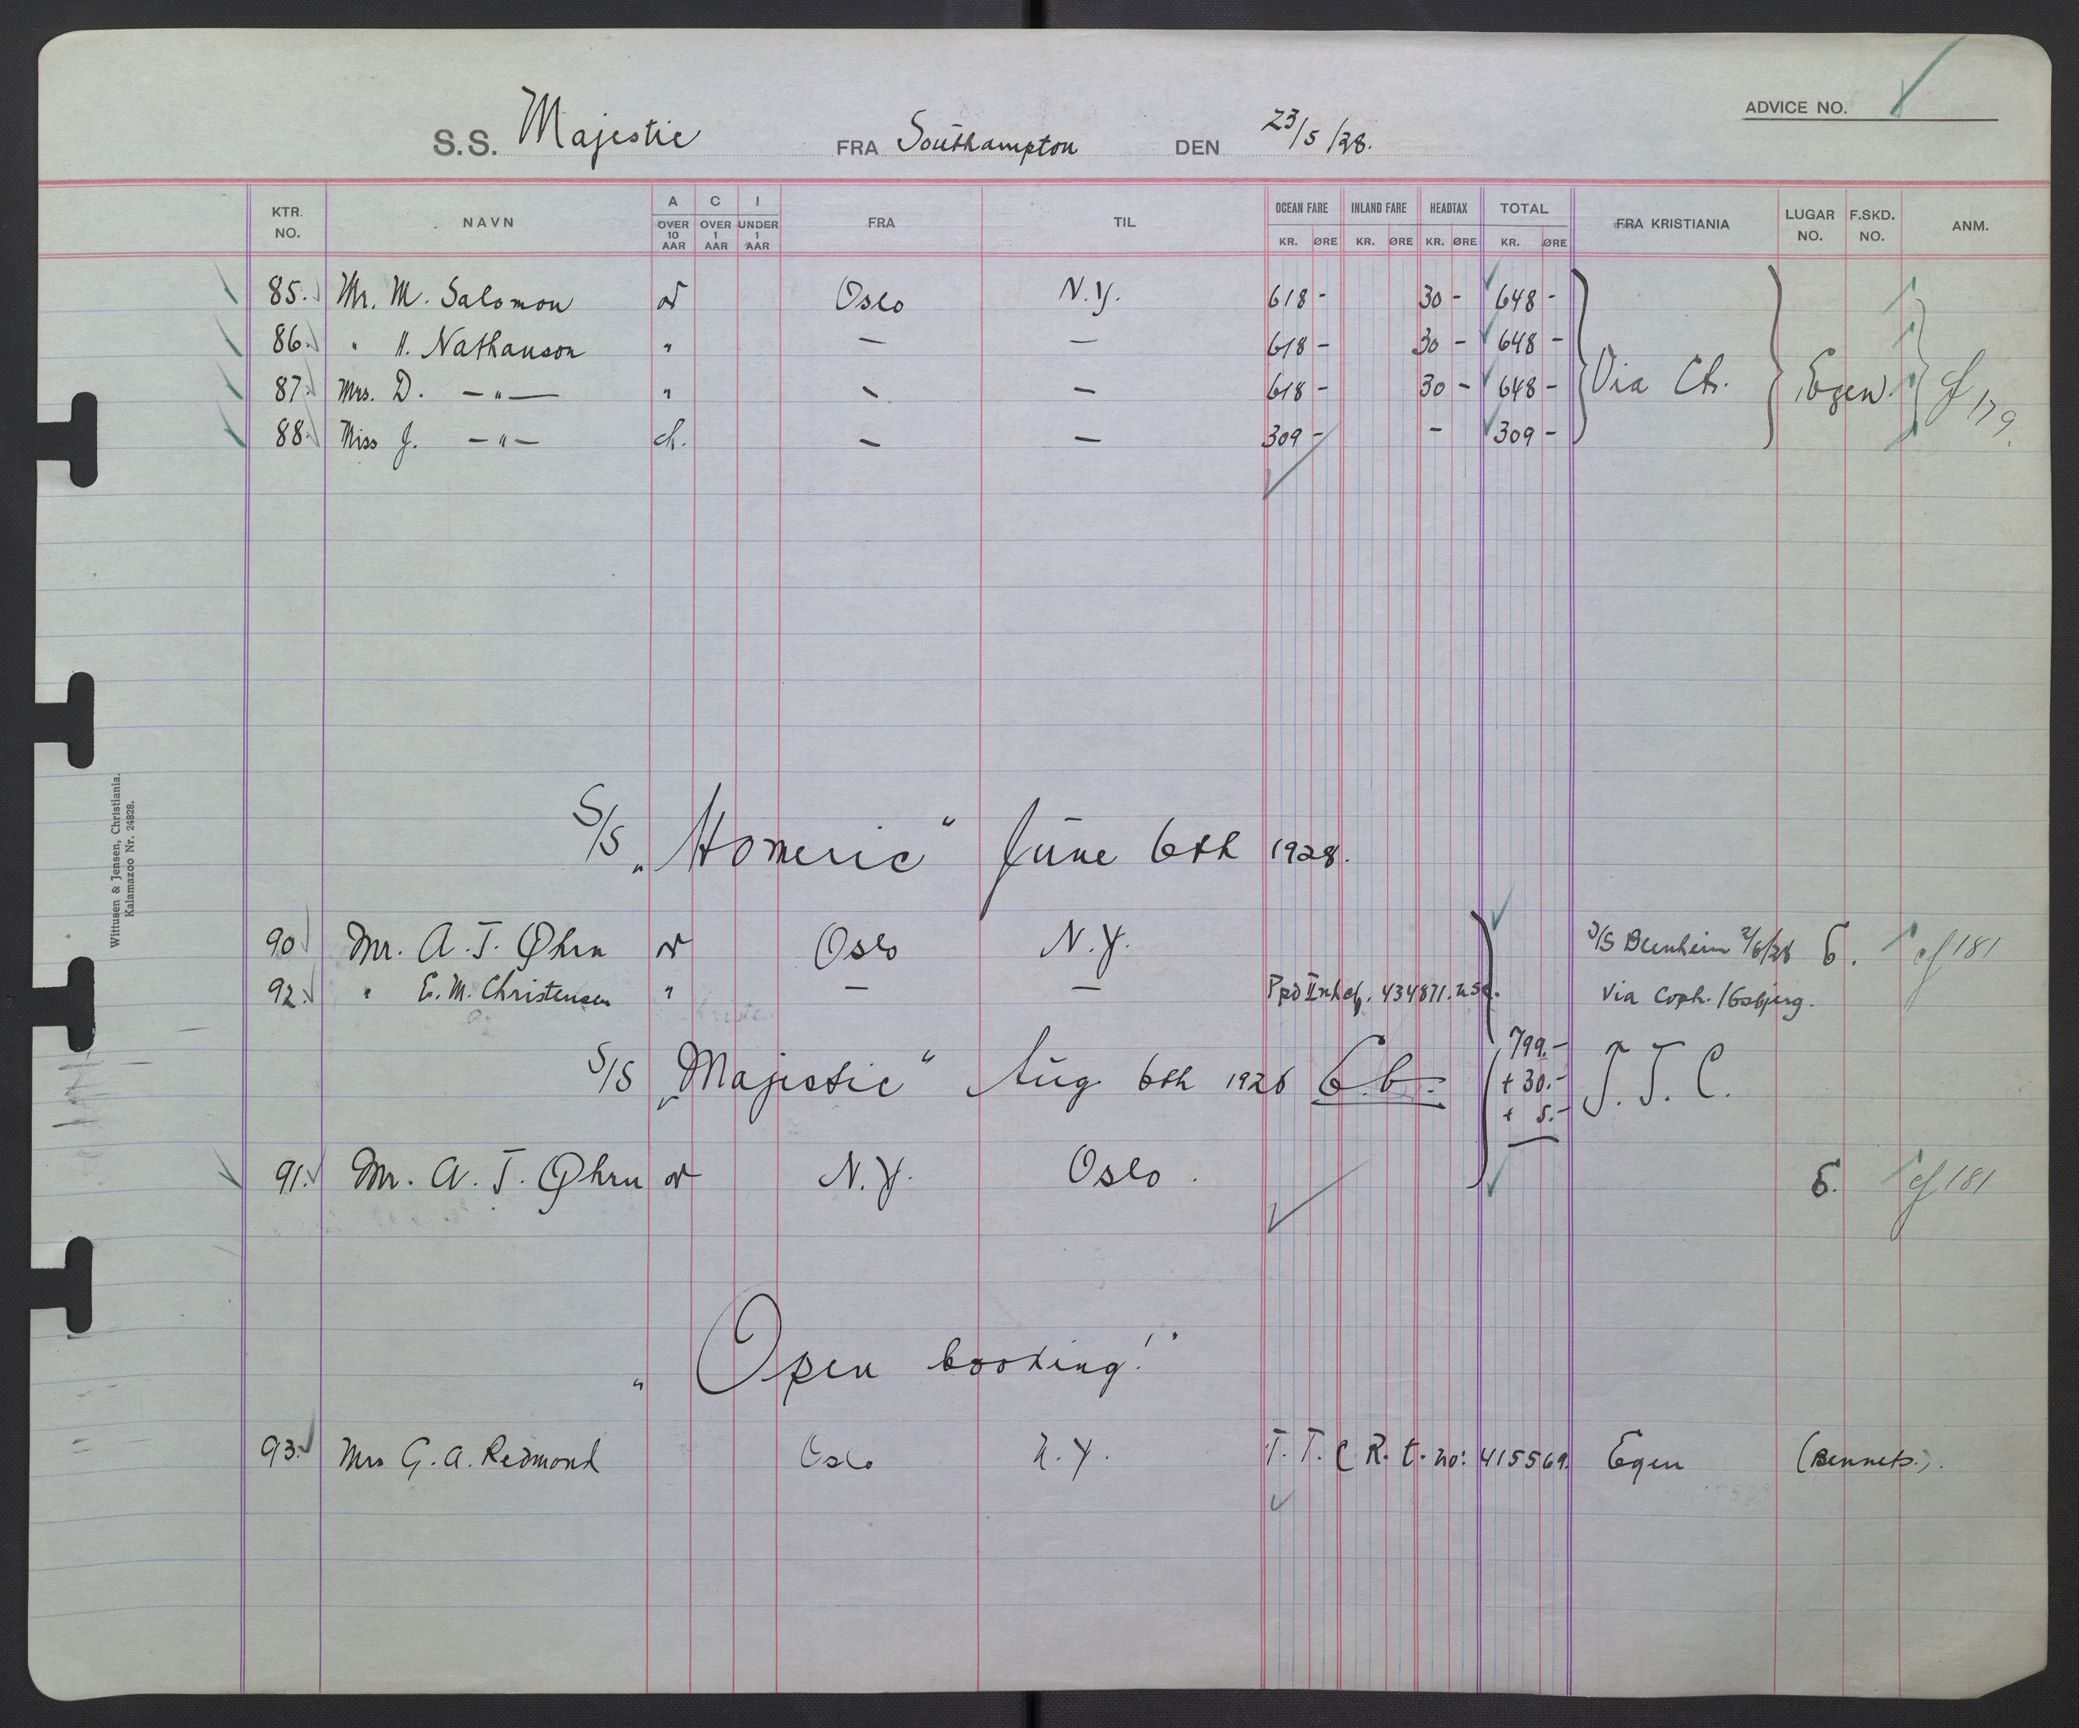 ADVICE NO.
S.S. Majestic FRA Southampton DEN 23/5/28.
KTR. NO. NAVN A OVER 10 AAR C OVER 1 AAR I UNDER 1 AAR FRA TIL OCEAN FARE KR. ØRE INLAND FARE KR. ØRE HEADTAX KR. ØRE TOTAL KR. ØRE FRA KRISTIANIA LUGAR NO. F.SKD. NO. ANM.
85. Mr. M. Salomon ad Oslo N.Y. 618 - 30 - 648 -
86. " H. Nathanson " — — 618 - 30 - 648 -
87. Mrs. D. — " — " — — 618 - 30 - 648 - Via Ch. Egen. cf 179.
88. Miss J. — " — ch. — — 309 - - 309 -
S/S "Homeric" June 6th 1928.
90 Mr. A. T. Øhrn ad Oslo N.Y. S/S Blenheim 2/6/28 B. cf 181
92. " E. M. Christensen " — — Ppd 434871. Via Coph. / Esbjerg.
S/S "Majestic" Aug. 6th 1928 799.- + 30.- + 5.- T. T. C.
91. Mr. A. T. Øhrn ad N.Y. Oslo. B. cf 181
"Open booking!"
93. Mrs G. A. Redmond Oslo N.Y. T. T. C R. t. no: 415569. Egen (Bennets.).
Wittusen & Jensen, Christiania.
Kalamazoo Nr. 24828.